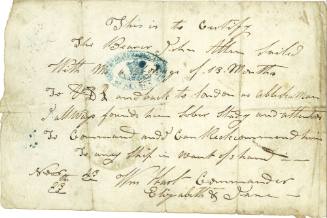 This is to Certify
The Bearer John Allen Sailed
With Me Voyage of 13 Months
To and back to London as able
I always found him Sober Steady and attentive
To Command and I Can Reckcommend him
To any Ship in want of a hand
Wm Hart Commander
Elizabeth & Jane